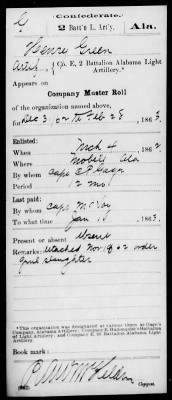 Confederate.
G 2 Batt'n L. Art'y. Ala.
Henri Green
Artif, Co. E, 2 Battalion Alabama Light Artillery.*
Appears on
Company Muster Roll
of the organization named above,
for Dec 31, 62 to Feb 28, 1863
Enlisted:
When Mch 4, 1862
Where Mobile Ala
By whom Capt
Period 12 mos
Last paid:
By whom Capt McVoy
To what time Jan 1, 1863.
Present or absent Absent
Remarks: Attached Nov 19 62 order
Genl Slaughter
*This organization was designated at various times as Gage's
Company, Alabama Artillery; Company E, Hallonquist's Battalion
Light Artillery; and Company E, 2d Battalion Alabama Light
Artillery.
Book mark:
Copyist.